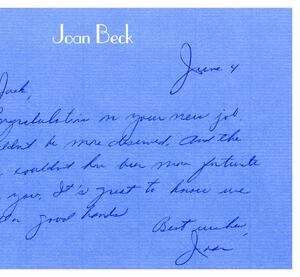 Joan Beck
June 4
Jack,
ongratulations on your new job.
ldn't be more deserved. And the
couldn't have been more fortunate
you. It's great to know we
in good hands
Best wishes,
Joan